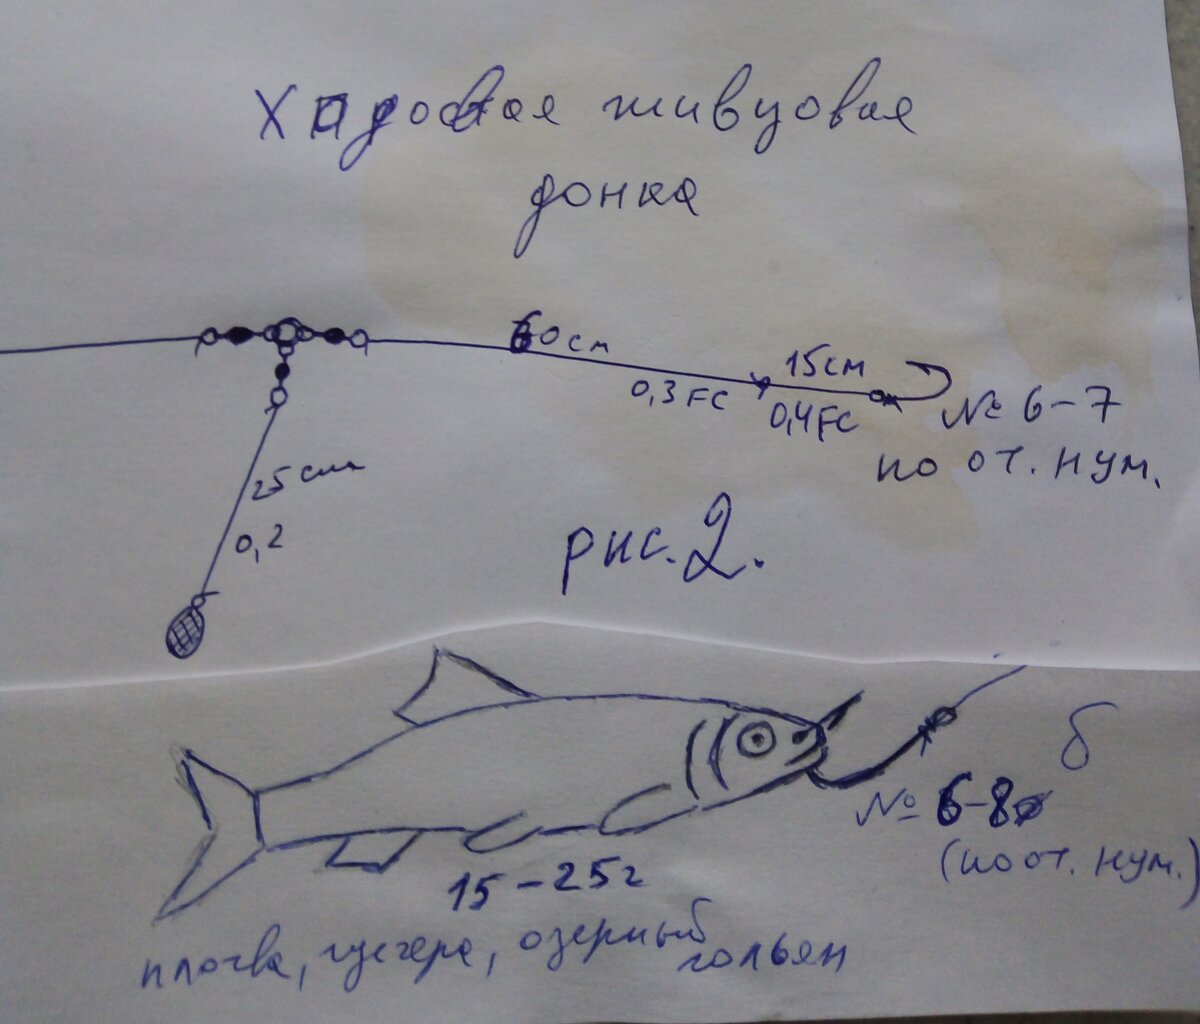 Ходовая живцовая
донка
60 см
15 см
0,3 FC
0,4 FC
№ 6-7
по от. нум.
25 см
0,2
рис. 2.
б
№ 6-8
(по от. нум.)
15-25 г
плотва, густера, озерный
гольян